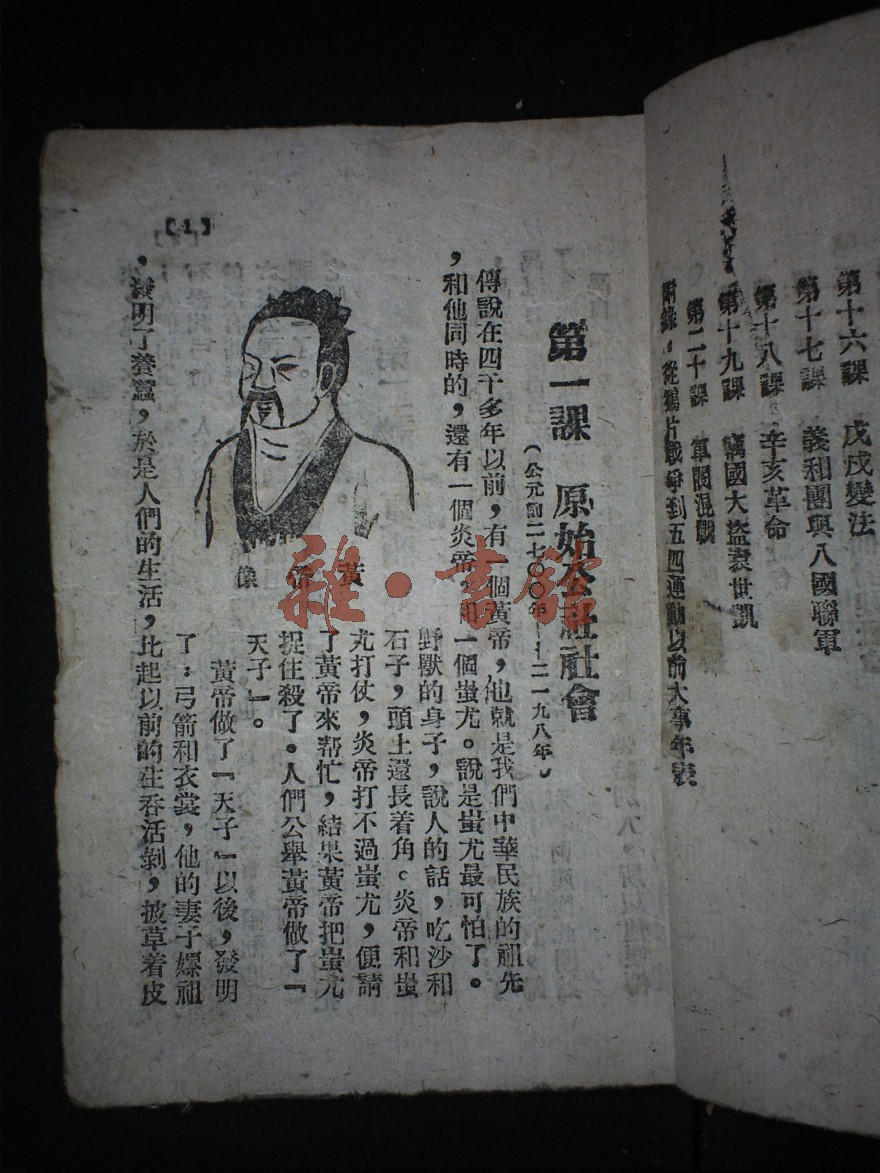 第十六課 戊戌變法
第十七課 義和團與八國聯軍
第十八課 辛亥革命
第十九課 竊國大盜袁世凱
第二十課 軍閥混戰
附錄:從鴉片戰爭到五四運動以前大事年表
第一課 原始公社社會
(公元前二七〇〇年——二一九八年)
傳說在四千多年以前,有一個黃帝,他就是我們中華民族的祖先
,和他同時的,還有一個炎帝,和一個蚩尤。說是蚩尤最可怕了。
野獸的身子,說人的話,吃沙和
石子,頭上還長着角。炎帝和蚩
尤打仗,炎帝打不過蚩尤,便請
了黃帝來帮忙,結果黃帝把蚩尤
捉住殺了。人們公舉黃帝做了『
天子』。
黃帝像
黃帝做了『天子』以後,發明
了:弓箭和衣裳,他的妻子嫘祖
,發明了養蠶,於是人們的生活,比起以前的生吞活剝,披草着皮
【1】
雜·書館